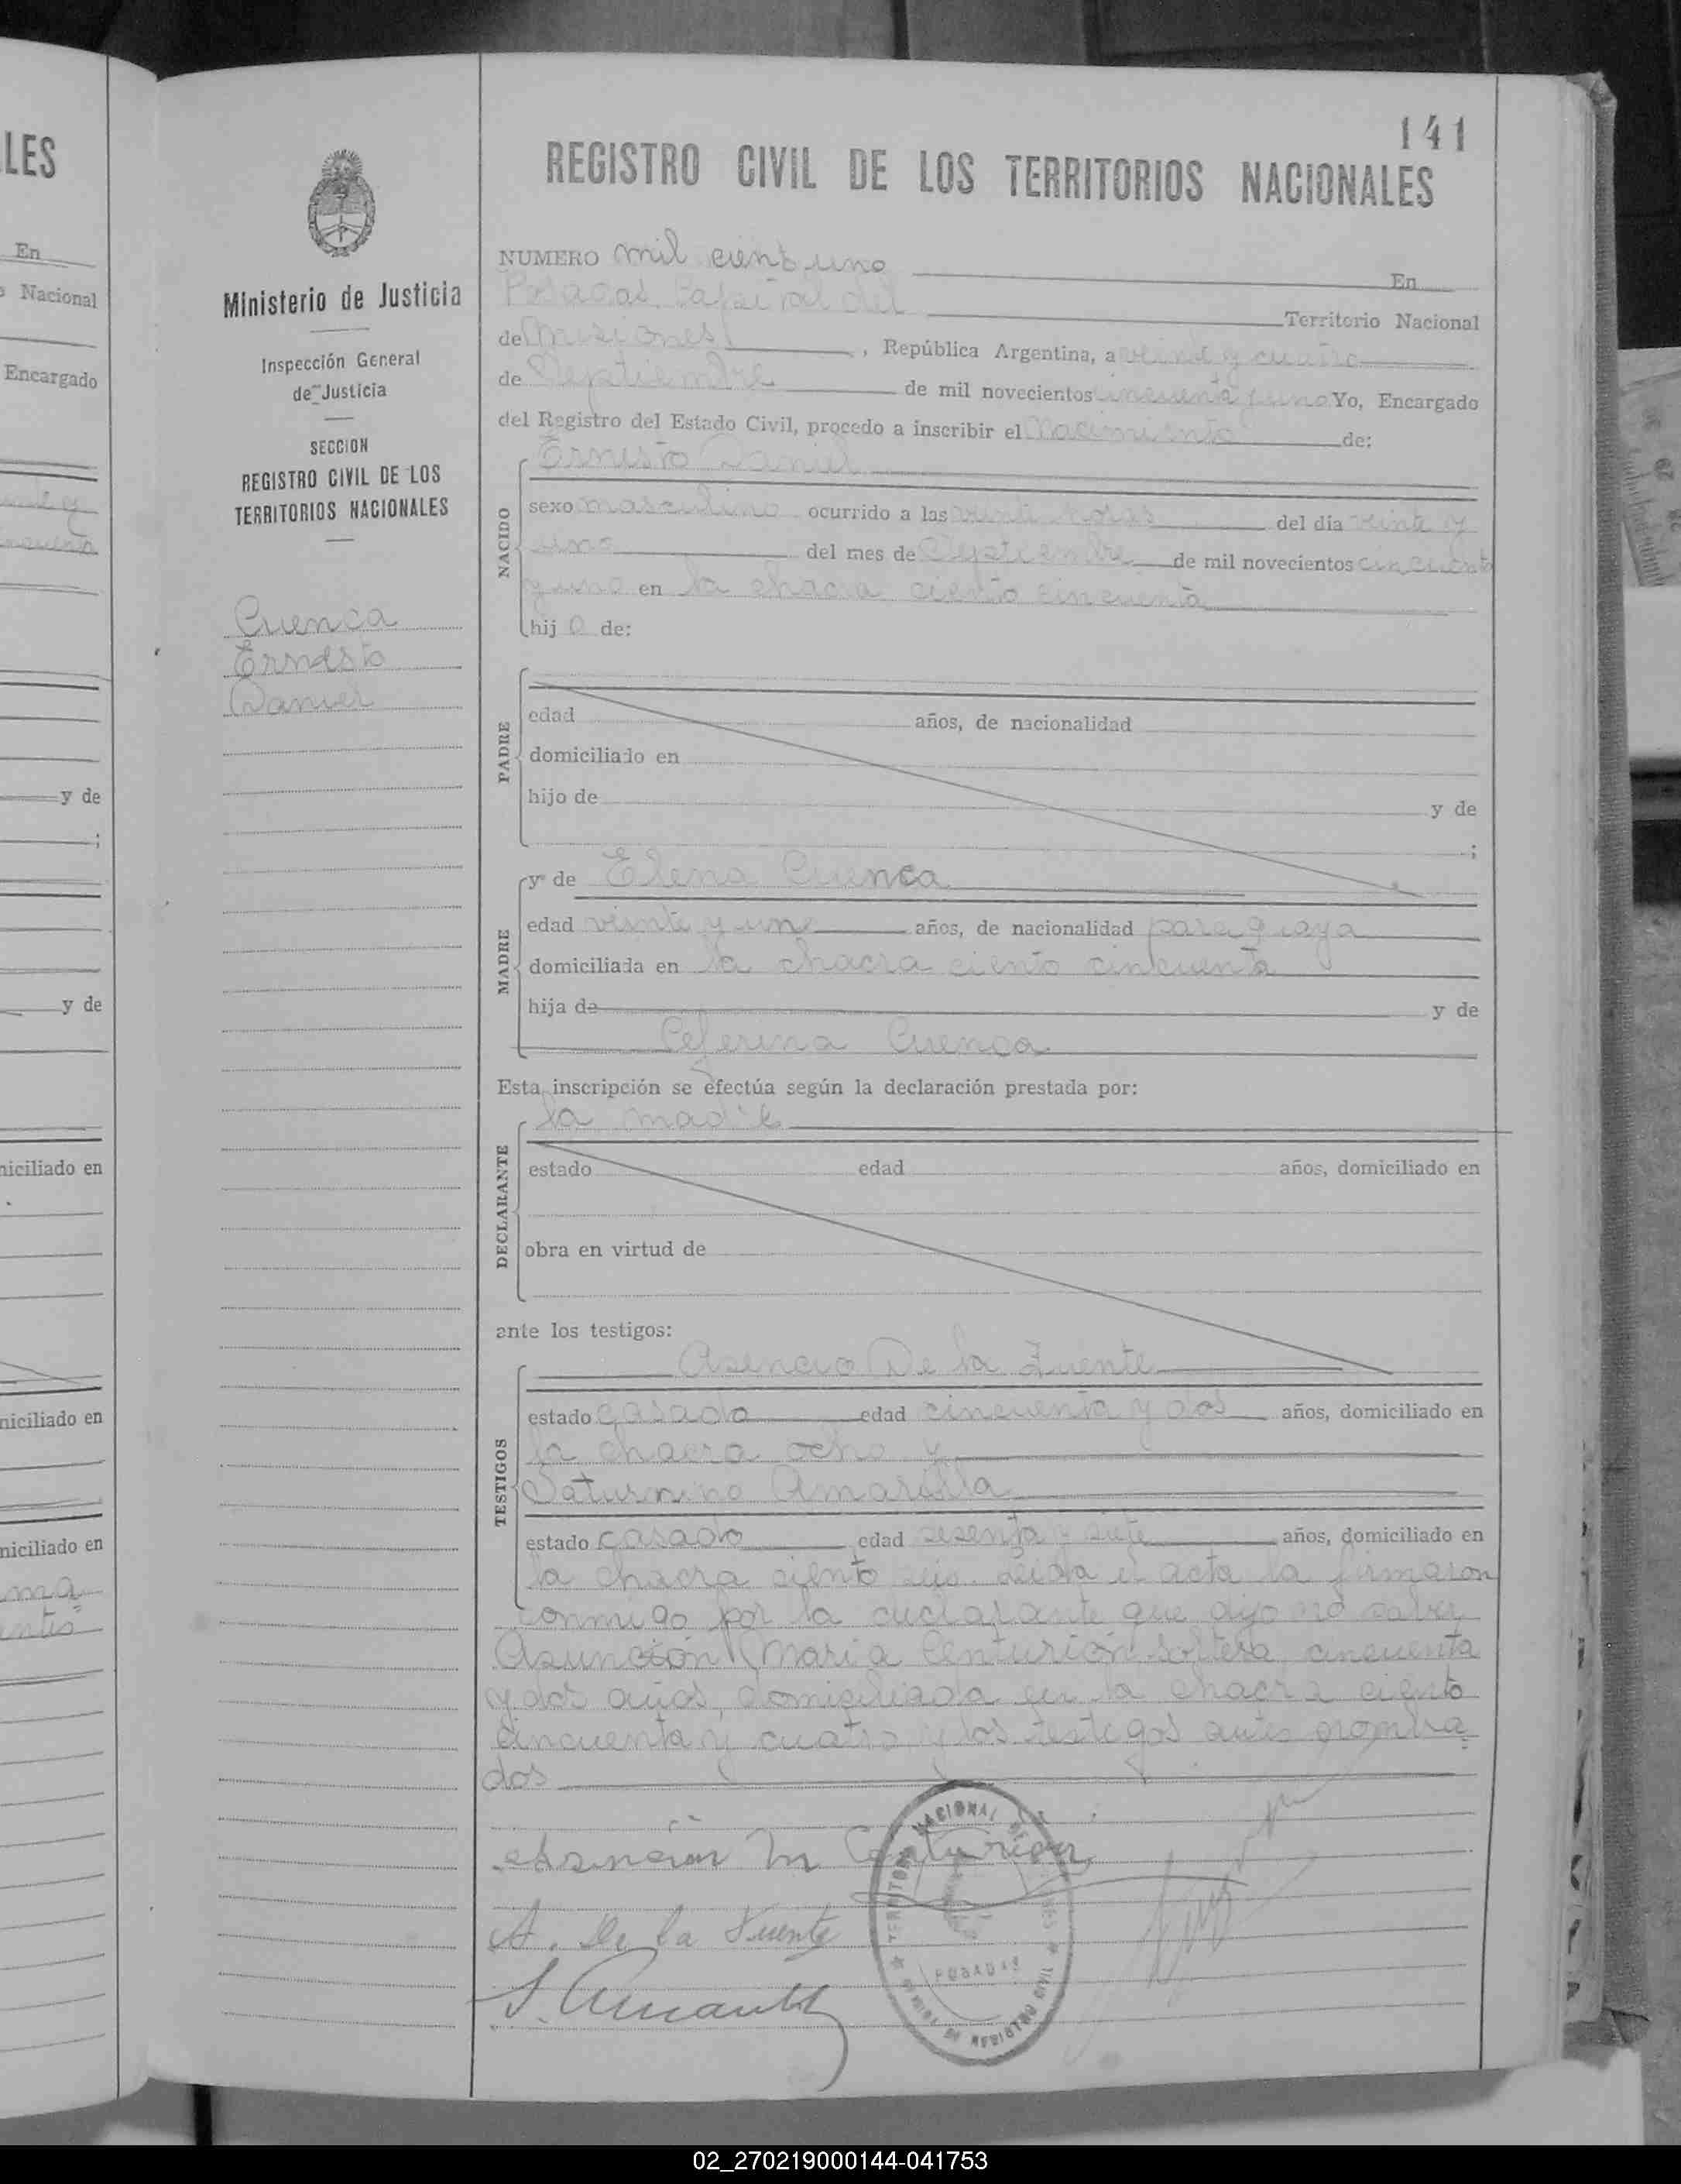 LES
En
Nacional
Encargado
y de
;
y de
niciliado en
niciliado en
niciliado en
ma
Ministerio de Justicia
Inspección General
de Justicia
SECCION
REGISTRO CIVIL DE LOS
TERRITORIOS NACIONALES
Cuenca
Ernesto
Daniel
141
REGISTRO CIVIL DE LOS TERRITORIOS NACIONALES
NUMERO mil ciento uno En
Posadas Capital del Territorio Nacional
de Misiones, República Argentina, a veinte y cuatro
de Septiembre de mil novecientos cincuenta y uno Yo, Encargado
del Registro del Estado Civil, procedo a inscribir el Nacimiento de:
Ernesto Daniel
NACIDO
sexo masculino ocurrido a las veinte horas del día veinte y
uno del mes de Septiembre de mil novecientos cincuenta
y uno en la chacra ciento cincuenta
hijo de:
PADRE
edad años, de nacionalidad
domiciliado en
hijo de y de
;
y de Elena Cuenca
MADRE
edad veinte y uno años, de nacionalidad paraguaya
domiciliada en la chacra ciento cincuenta
hija de y de
Ceferina Cuenca
Esta inscripción se efectúa según la declaración prestada por:
la madre
DECLARANTE
estado edad años, domiciliado en
obra en virtud de
ante los testigos:
Asencio De la Fuente
TESTIGOS
estado casado edad cincuenta y dos años, domiciliado en
la chacra ocho y
Saturnino Amarilla
estado casado edad sesenta y siete años, domiciliado en
la chacra ciento seis. Leida el acta la firmaron
conmigo por la declarante que dijo no saber
Asunción Maria Centurión soltera, cincuenta
y dos años, domiciliada en la chacra ciento
cincuenta y cuatro y los testigos antes nombra
dos
Asunción M Centurion
A. De la Fuente
S. Amarilla
TERRITORIO NACIONAL DE
POSADAS
DE REGISTRO CIVIL
02_270219000144-041753